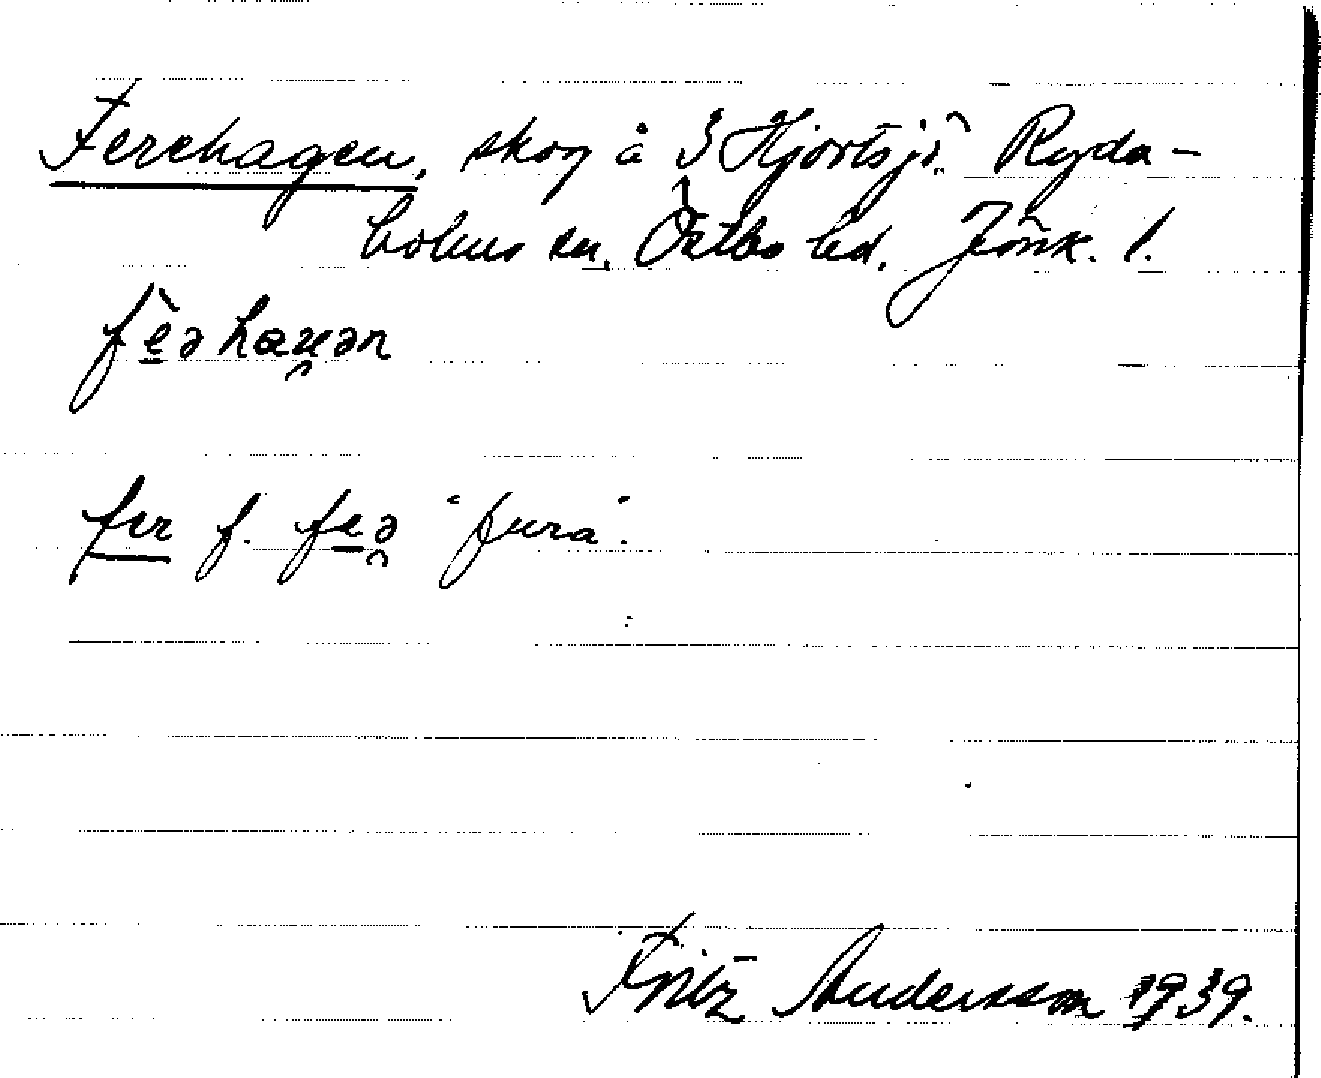 Ferehagen, skog å 3 Hjortsjö. Ryda-
bohus sn. Östbo hd. Jönk. l.
fèəhaɯ̯ən
fer f. feə̯ "fura".
Fritz Andersson 1939.